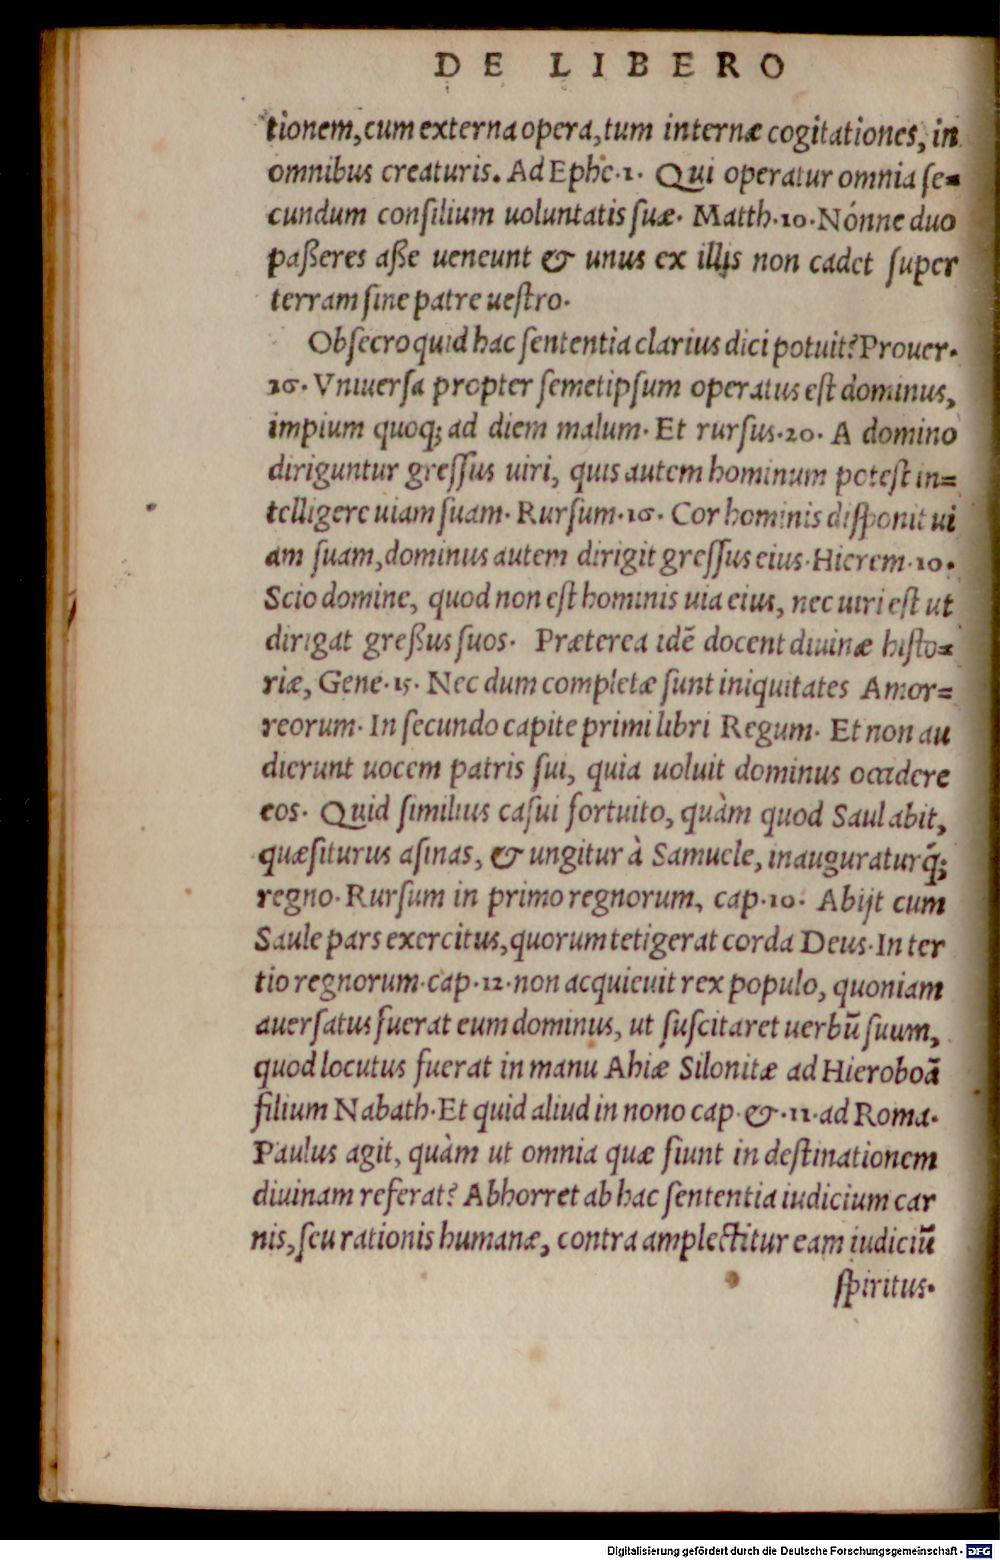 DE LIBERO
tionem, cum externa opera, tum internæ cogitationes, in
omnibus creaturis. Ad Ephe. 1. Qui operatur omnia ſe-
cundum conſilium uoluntatis ſuæ. Matth. 10. Nónne duo
paßeres aße ueneunt & unus ex illis non cadet ſuper
terram ſine patre ueſtro.
Obſecro quid hac ſententia clarius dici potuit? Prouer.
16. Vniuerſa propter ſemetipſum operatus eſt dominus,
impium quoq; ad diem malum. Et rurſus. 20. A domino
diriguntur greſſus uiri, quis autem hominum poteſt in=
telligere uiam ſuam. Rurſum. 16. Cor hominis diſponit ui
am ſuam, dominus autem dirigit greſſus eius. Hierem. 10.
Scio domine, quod non eſt hominis uia eius, nec uiri eſt ut
dirigat greßus ſuos. Præterea idē docent diuinæ hiſto-
riæ, Gene. 15. Nec dum completæ ſunt iniquitates Amor=
reorum. In ſecundo capite primi libri Regum. Et non au
dierunt uocem patris ſui, quia uoluit dominus occidere
eos. Quid ſimilius caſui fortuito, quàm quod Saul abit,
quæſiturus aſinas, & ungitur à Samuele, inauguraturq́;
regno. Rurſum in primo regnorum, cap. 10. Abijt cum
Saule pars exercitus, quorum tetigerat corda Deus. In ter
tio regnorum. cap. 12. non acquieuit rex populo, quoniam
auerſatus fuerat eum dominus, ut ſuſcitaret uerbū ſuum,
quod locutus fuerat in manu Ahiæ Silonitæ ad Hieroboā
filium Nabath. Et quid aliud in nono cap. &. 11. ad Roma.
Paulus agit, quàm ut omnia quæ fiunt in deſtinationem
diuinam referat? Abhorret ab hac ſententia iudicium car
nis, ſeu rationis humanæ, contra amplectitur eam iudiciū
ſpiritus.
Digitalisierung gefördert durch die Deutsche Forschungsgemeinschaft - DFG